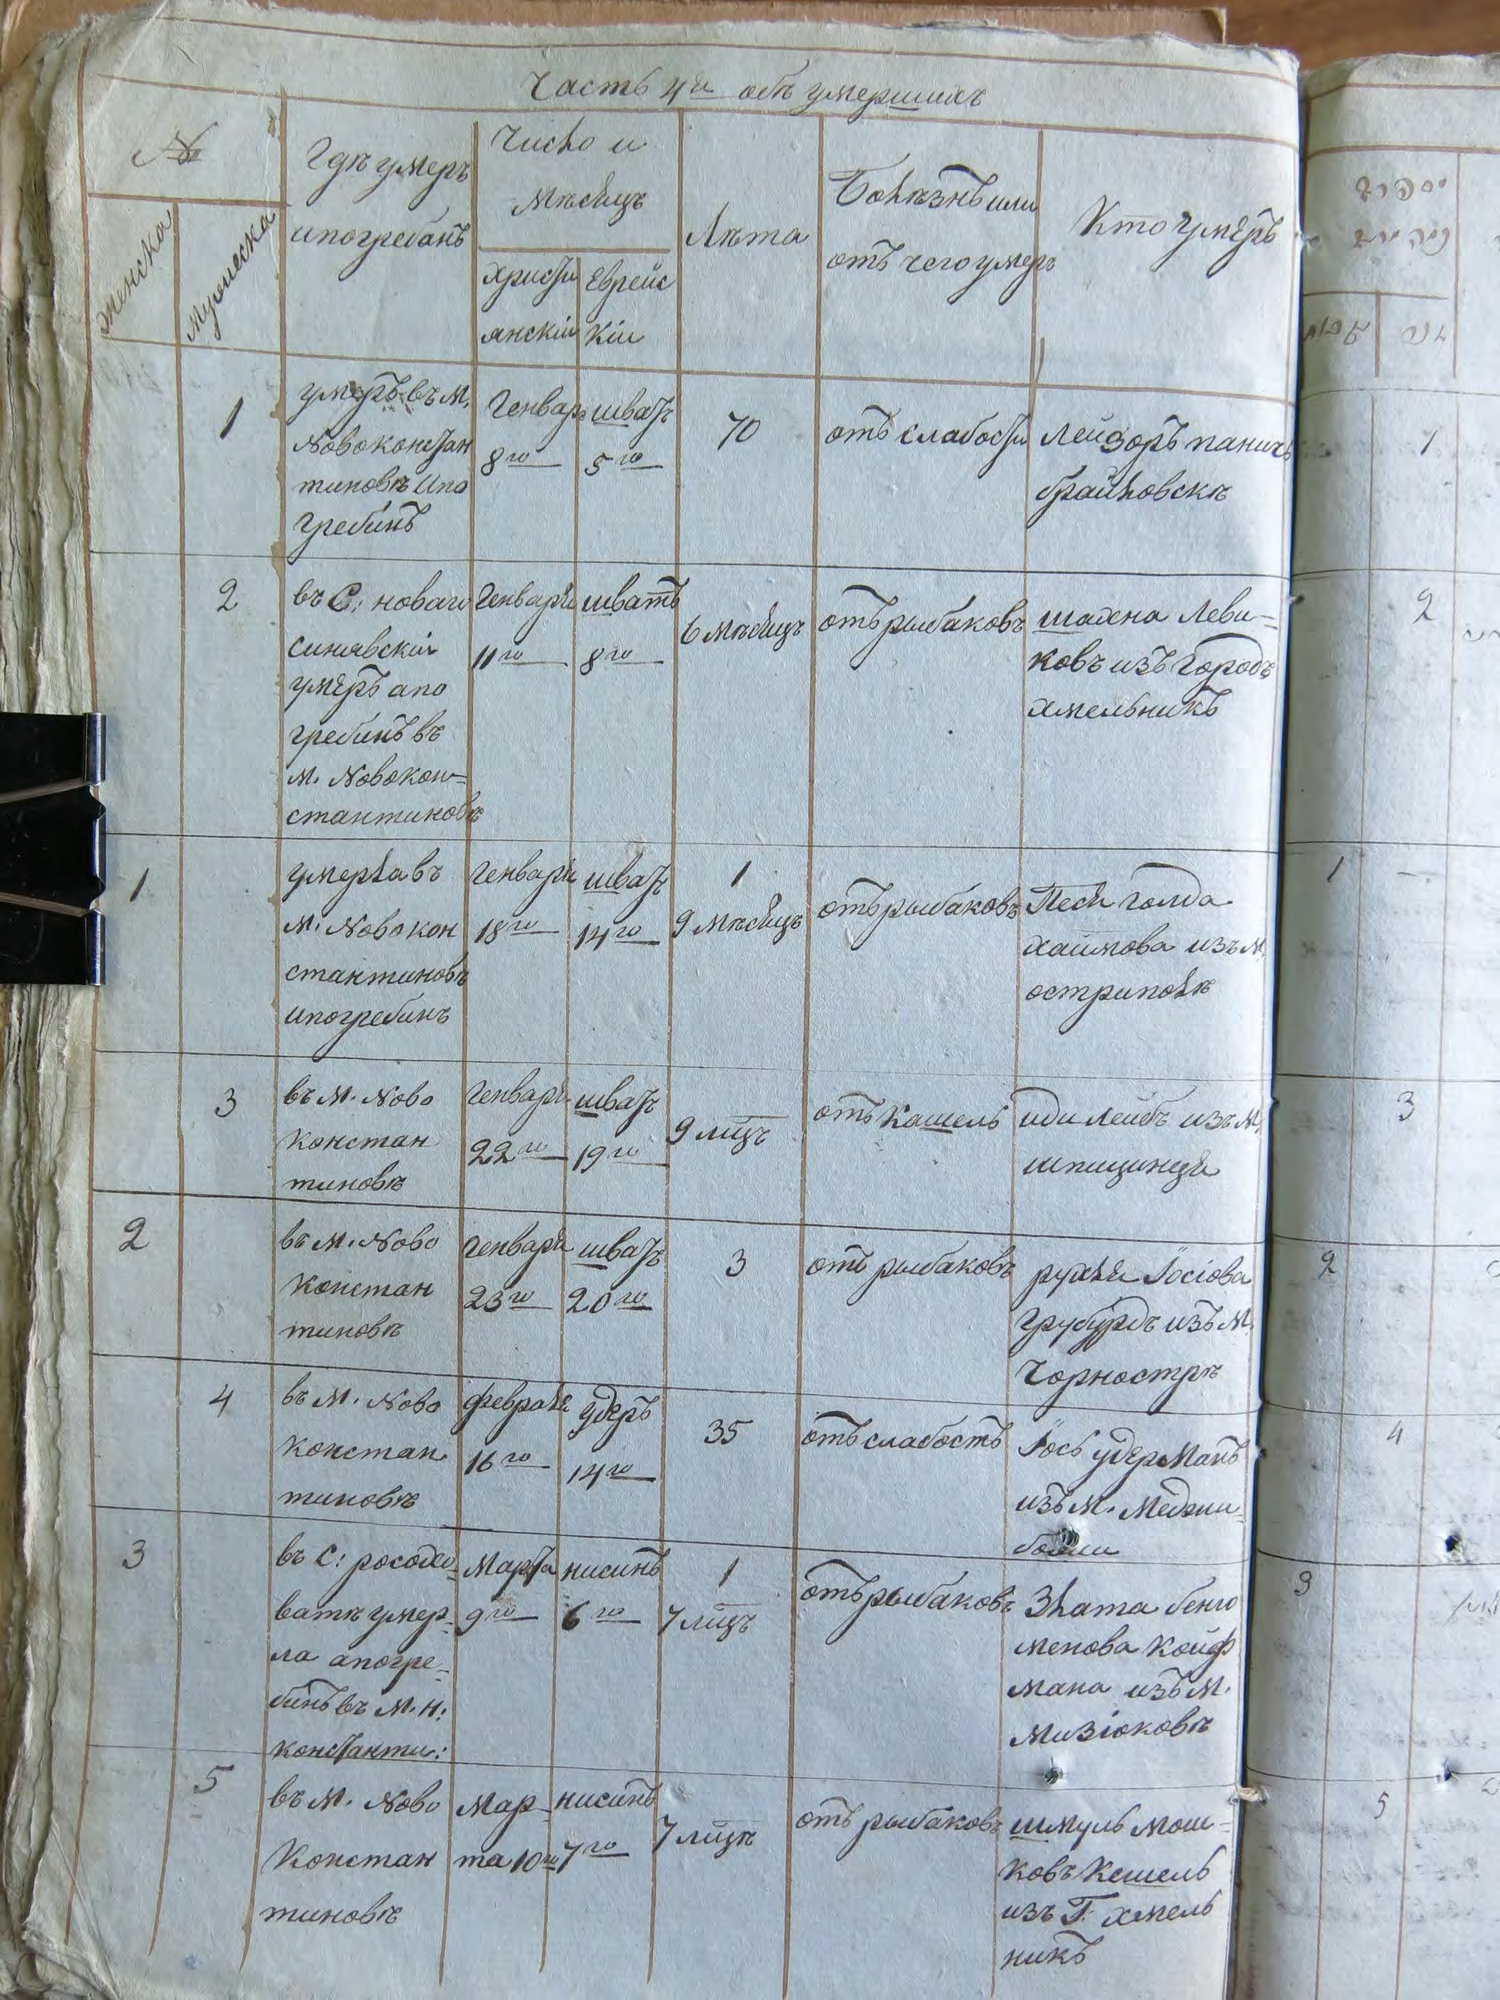 Часть 4й объ умершихъ
№
Женска
Мужеска
Гдѣ умеръ
ипогребанъ
Число и
Мѣсяцъ
Христи
янскіи
Еврейс
Кіи
Лѣта
Болѣзнь или
отъ чего умеръ
Кто умеръ
1
умеръ въ М.
Новоконстан
тиновѣ ипо
гребинъ
Генваря
8го
шватъ
5го
70
отъ слабости
Лейзоръ паничъ
брайловскѣ
2
въ С: новаго
синявскіи
умеръ апо
гребинъ въ
М. Новокон-
стантиновѣ
Генваря
11го
шватъ
8го
6 Мѣсяцъ
отъ рыбаковъ
шахна Леви-
ковъ изъ Городъ
хмельникъ
1
умерла въ
М. Новокон
стантиновѣ
ипогребинъ
Генваря
18го
шватъ
14го
1
9 мѣсяцъ
отъ рыбаковъ
Песя голда
хаимова изъ М.
острополѣ
3
въ М. Ново
констан
тиновѣ
Генваря
22го
шватъ
19го
9 мцъ
отъ кашель
иди лейбъ изъ М.
шпицинца
2
въ М. Ново
Констан
тиновѣ
Генваря
23го
шватъ
20го
3
отъ рыбаковъ
рухля Іосіова
изъ М.
Чорностръ
4
въ М. Ново
Констан
тиновѣ
февраля
16го
удеръ
14го
35
отъ слабость
Іось удерманъ
изъ М. Меджи-
божи
3
въ С: росохо-
ватѣ умер-
ла апогре-
бинъ въ М. Н:
константи:
Марта
9го
нисинъ
6го
1
7 мцъ
отъ рыбаковъ
Злата бенго
менова Койф
мана изъ М.
Мизіоковѣ
5
въ М. Ново
Констан
тиновѣ
Мар-
та 10го
нисинъ
7го
7 мцѣ
отъ рыбаковъ
шмуль мош-
ковъ Кешель
изъ Г. хмель
никъ
1
2
1
3
2
4
3
5